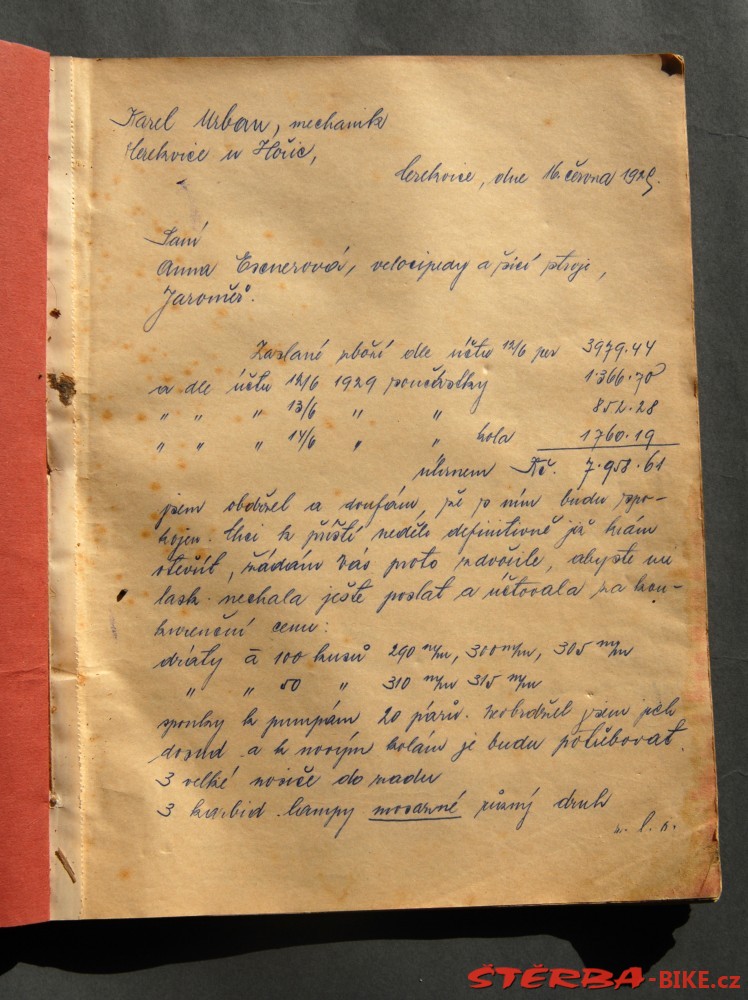 Karel Urban, mechanik
Cerekvice u Hořic,
Cerekvice, dne 16. června 1929.
Paní
Anna Exnerová, velocipedy a šicí stroje,
Jaroměř.
Zaslané zboží dle účtu 12/6 per 3979.44
a dle účtu 12/6 1929 součástky 1366.70
" " " 13/6 " " 852.28
" " " 14/6 " " kola 1760.19
úhrnem Kč. 7.958.61
jsem obdržel a doufám, že s ním budu spo-
kojen. Chci k příští neděli definitivně již krám
otevřít, žádám Vás proto zdvořile, abyste mi
lask. nechala ještě poslat a účtovala za kon-
kurenční cenu:
dráty à 100 kusů 290 m/m, 300 m/m, 305 m/m
" " 50 " 310 m/m 315 m/m
sponky k pumpám 20 párů. Neobdržel jsem jich
dosud a k novým kolám je budu potřebovat.
3 velké nosiče do zadu
3 karbid. lampy mosazné různý druh
ŠTĚRBA-BIKE.cz